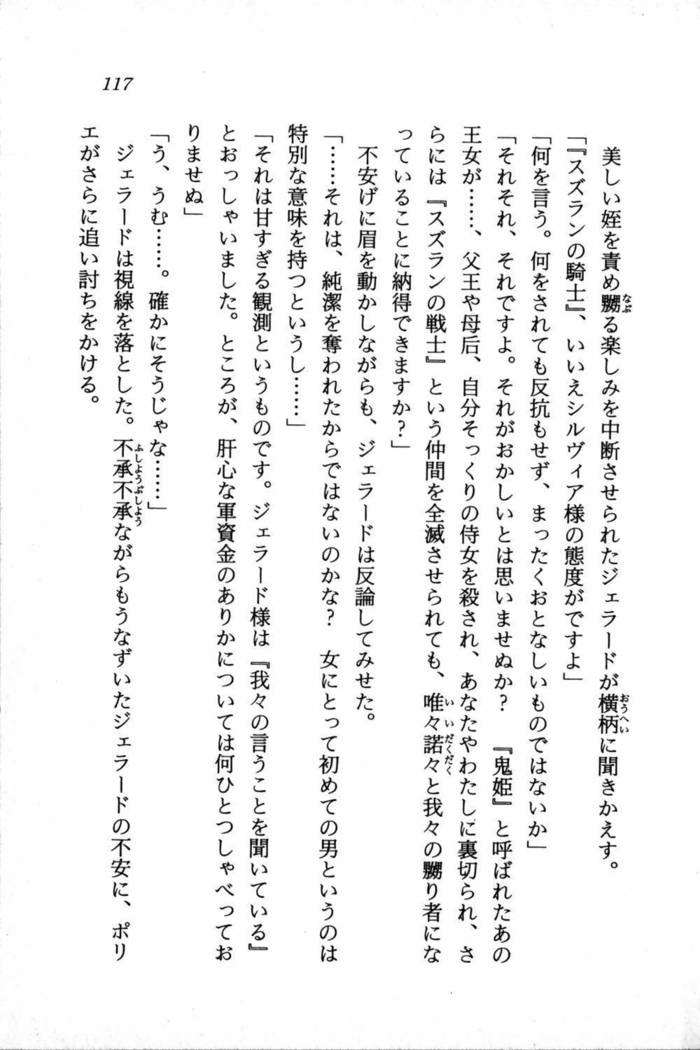 117
美しい姪を責め嬲る楽しみを中断させられたジェラードが横柄に聞きかえす。
「『スズランの騎士』、いいえシルヴィア様の態度がですよ」
「何を言う。何をされても反抗もせず、まったくおとなしいものではないか」
「それそれ、それですよ。それがおかしいとは思いませぬか？　『鬼姫』と呼ばれたあの
王女が……、父王や母后、自分そっくりの侍女を殺され、あなたやわたしに裏切られ、さ
らには『スズランの戦士』という仲間を全滅させられても、唯々諾々と我々の嬲り者にな
っていることに納得できますか？」
不安げに眉を動かしながらも、ジェラードは反論してみせた。
「……それは、純潔を奪われたからではないのかな？　女にとって初めての男というのは
特別な意味を持つというし……」
「それは甘すぎる観測というものです。ジェラード様は『我々の言うことを聞いている』
とおっしゃいました。ところが、肝心な軍資金のありかについては何ひとつしゃべってお
りませぬ」
「う、うむ……。確かにそうじゃな……」
ジェラードは視線を落とした。不承不承ながらもうなずいたジェラードの不安に、ポリ
エがさらに追い討ちをかける。